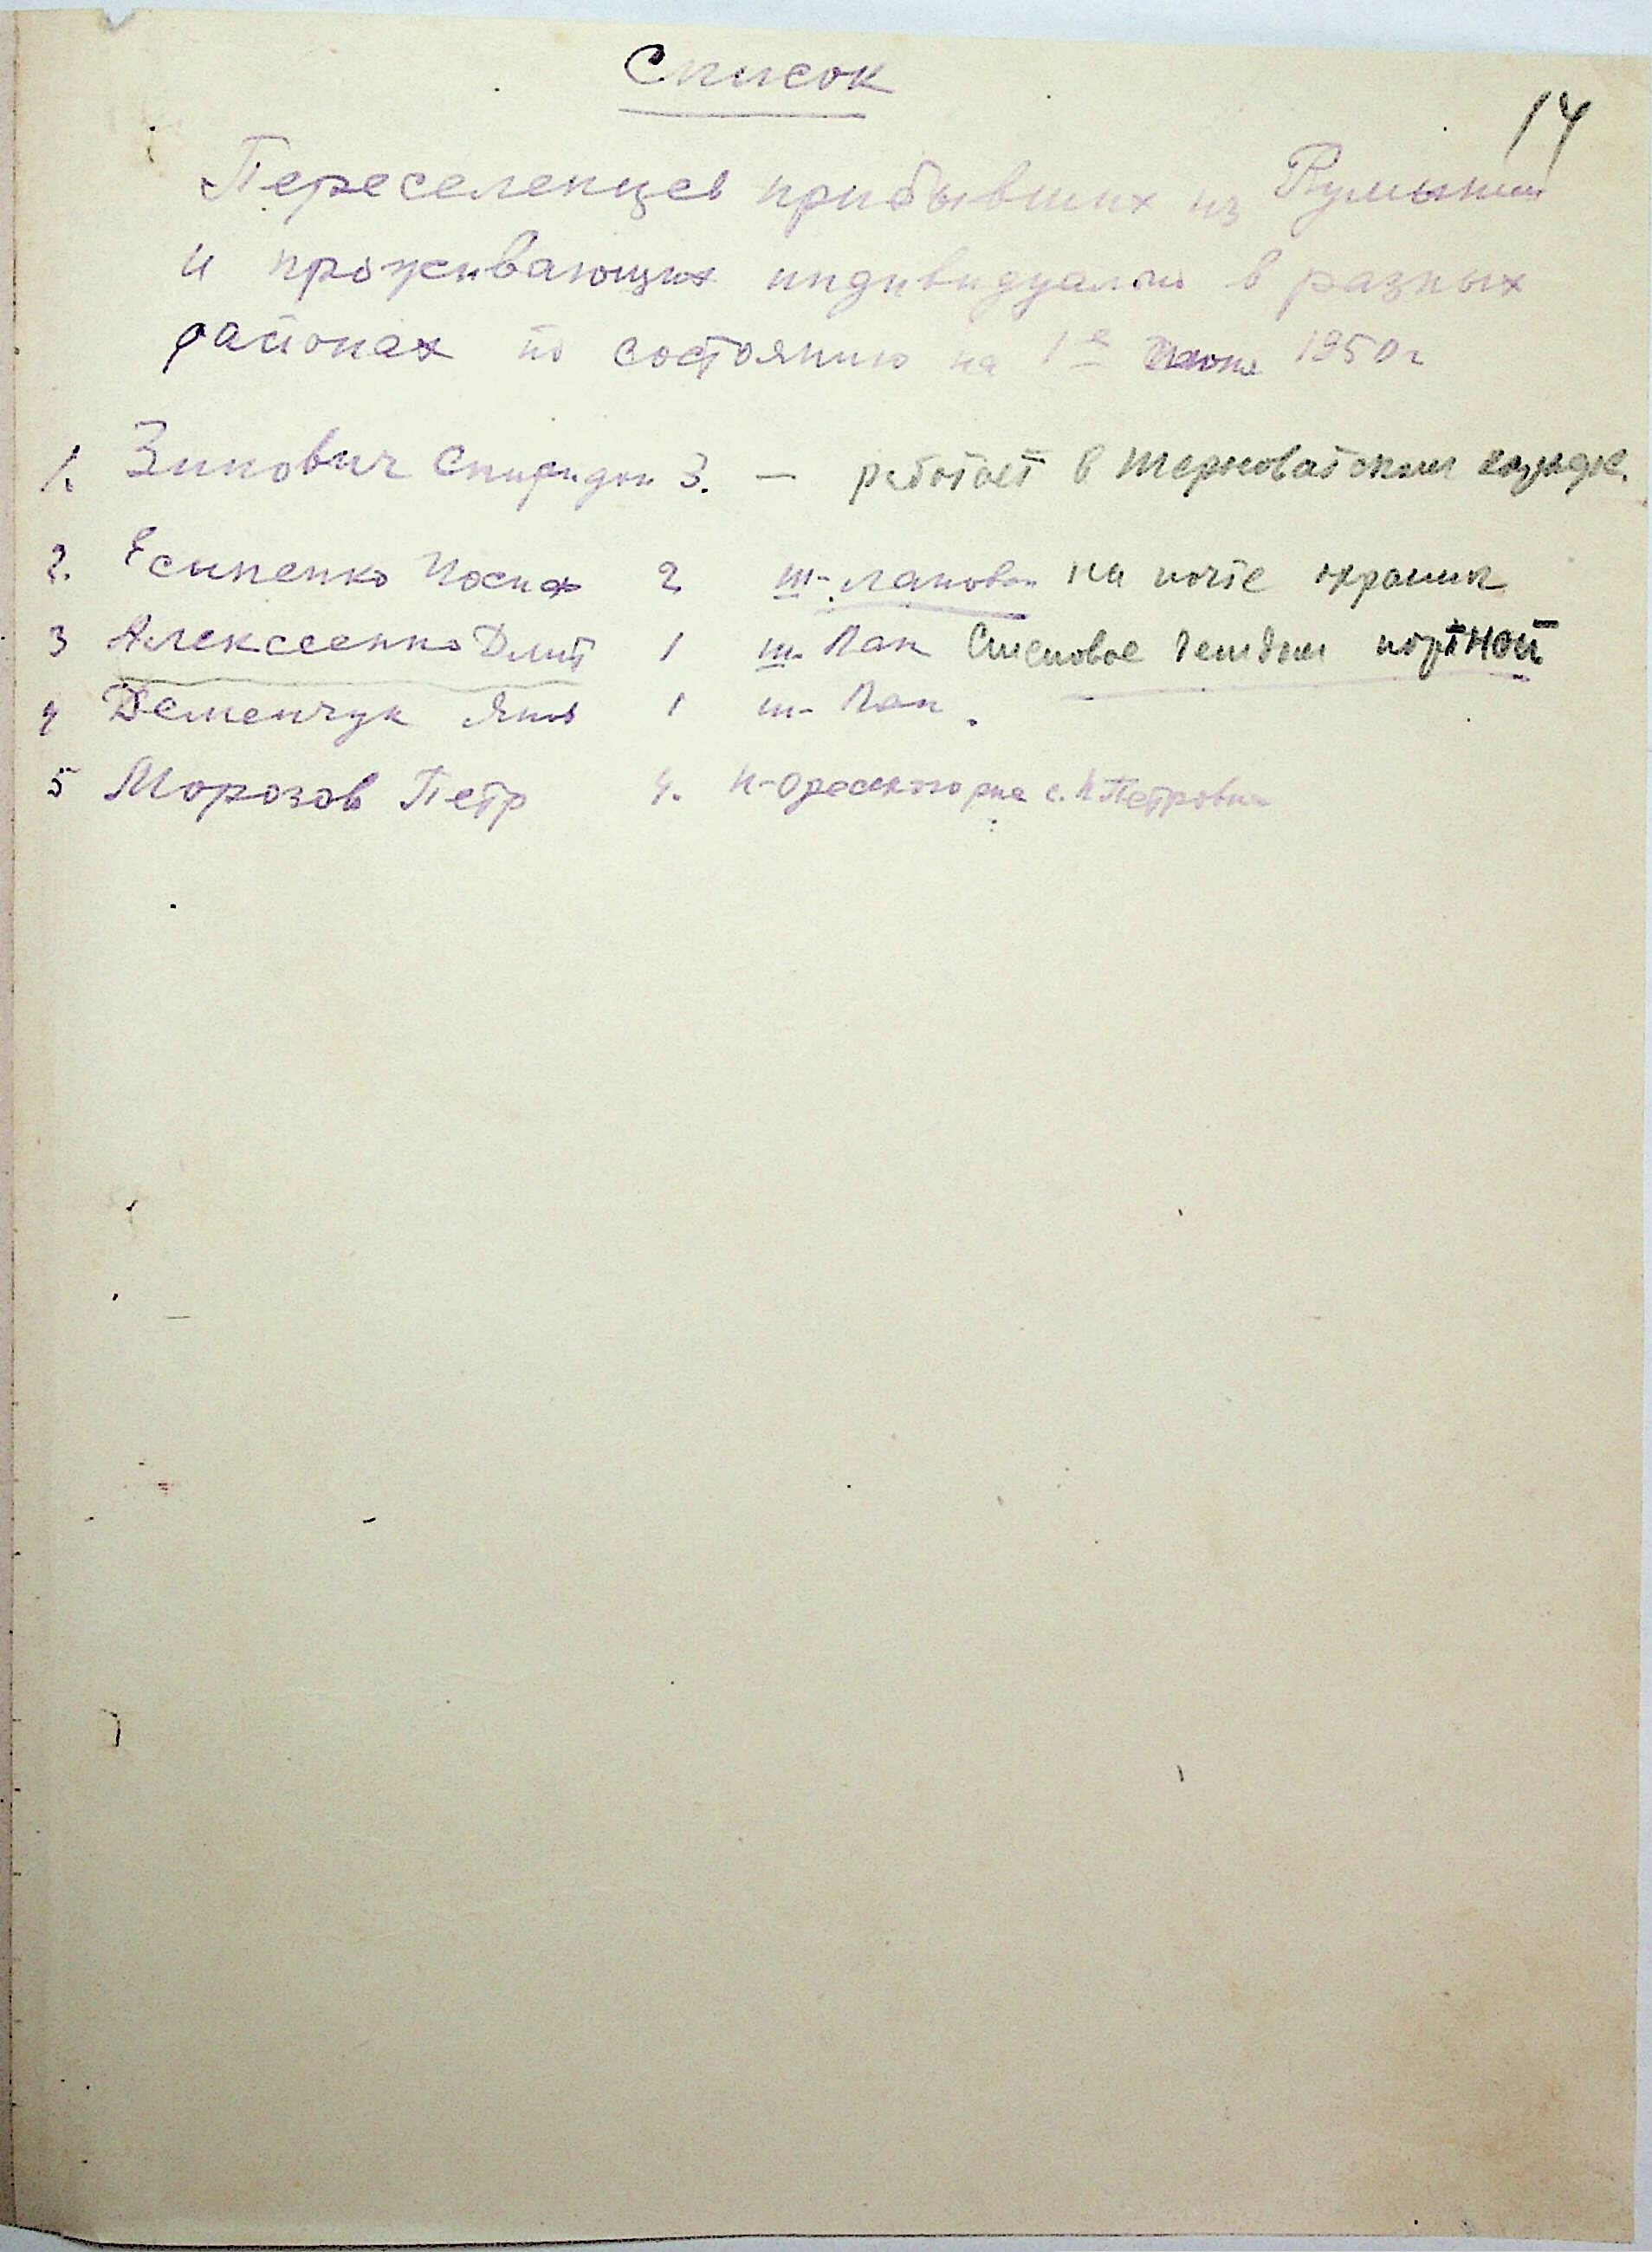 Список
14
Переселенцев прибывших из Румынии
и проживающих индивидуально в разных
районах по состоянию на 1е Июня 1950г
1. Зинович Спиридон 3. — работает в Терноватском
2. Есипенко Иосиф 2 ш-Лановом на почте охранник
3 Алексеенко Дмит 1 ш. Лан портной
4 Деменчук Яков 1 ш- Лан.
5 Морозов Петр 4. Н-Одесского рна с. Н Петровка